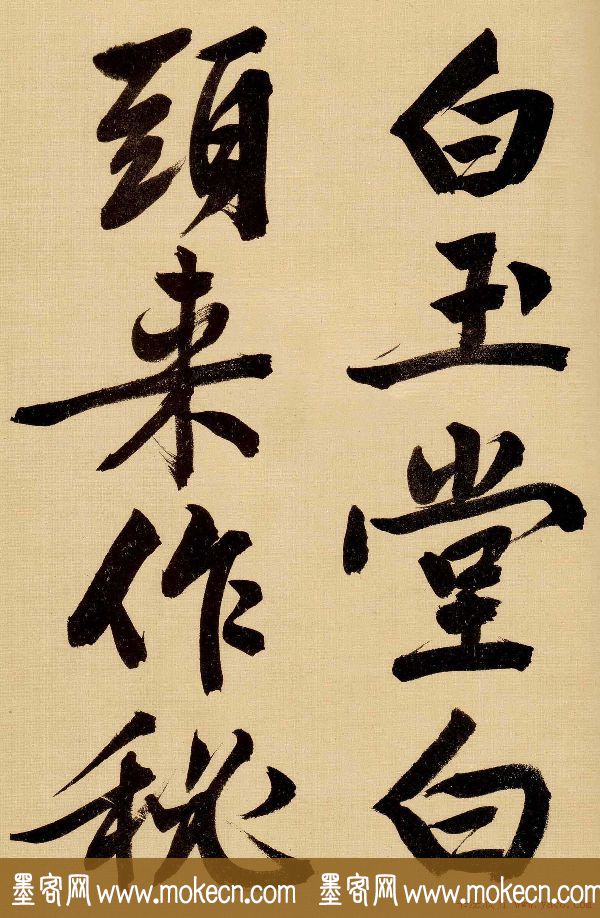 白玉堂白
頭来作秘
墨客网 www.mokecn.com 墨客网 www.mokecn.com